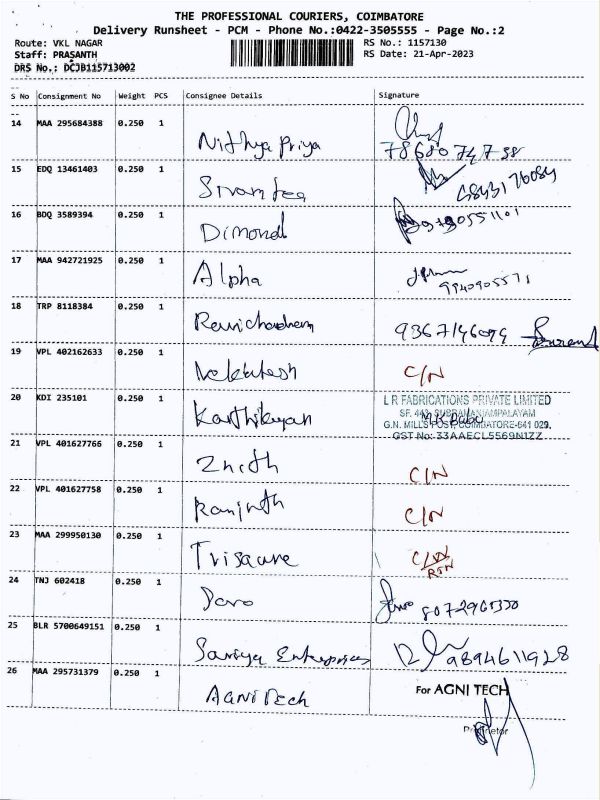 THE PROFESSIONAL COURIERS, COIMBATORE
Delivery Runsheet - PCM - Phone No.:0422-3505555 - Page No.:2
Route: VKL NAGAR RS No.: 1157130
Staff: PRASANTH RS Date: 21-Apr-2023
DRS No.: DCJB115713002
S No Consignment No Weight PCS Consignee Details Signature
14 MAA 295684388 0.250 1
Nithya Priya 7868074738
15 EDQ 13461403 0.250 1
16 BDQ 3589394 0.250 1
Dimond
17 MAA 942721925 0.250 1
Alpha 9940905571
18 TRP 8118384 0.250 1
Ravichandran 9367146094
19 VPL 402162633 0.250 1
C/N
20 KDI 235101 0.250 1
Karthikeyan
L R FABRICATIONS PRIVATE LIMITED
SF. 443, SUBRAMANIAMPALAYAM
G.N. MILLS POST, COIMBATORE-641 029.
GST No: 33AAECL5569N1ZZ
21 VPL 401627766 0.250 1
C/N
22 VPL 401627758 0.250 1
Ranjith C/N
23 MAA 299950130 0.250 1
C/N
RTN
24 TNJ 602418 0.250 1
25 BLR 5700649151 0.250 1
Enterprises 9894611928
26 MAA 295731379 0.250 1
Agni Tech For AGNI TECH
Proprietor